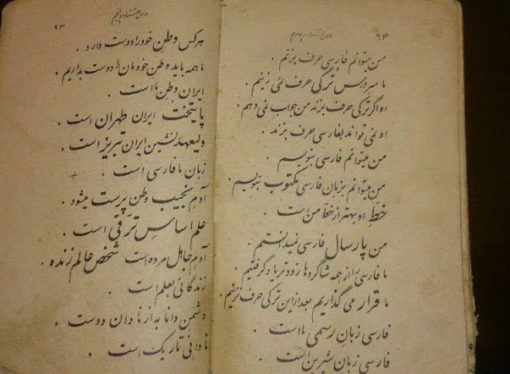 ۶۴
من میتوانم فارسی حرف بزنم .
ما سر درس ترکی حرف نمی زنیم .
او اگر ترکی حرف بزند من جواب نمی دهم .
او نمی تواند بفارسی حرف بزند .
من میتوانم فارسی بنویسم .
من میتوانم بزبان فارسی مکتوب بنویسم .
خط او بهتر از خط من است .
من پارسال فارسی نمیدانستم .
ما فارسی را از همه شاگردها زودتر یاد گرفتیم .
ما قرار می گذاریم بعد از این ترکی حرف نزنیم .
فارسی زبان رسمی ما است .
فارسی زبان شیرین است .
۶۳
درس هشتاد و پنجم
هر کس وطن خود را دوست دارد .
ما همه باید وطن خودمان را دوست بداریم .
ایران وطن ما است .
پایتخت ایران طهران است .
ولیعهد نشین ایران تبریز است .
زبان ما فارسی است .
آدم نجیب وطن پرست میشود .
علم اساس ترقی است .
آدم جاهل مرده است شخص عالم زنده .
زندگانی بعلم است .
دشمن دانا به از نادان دوست .
نادانی تاریک است .